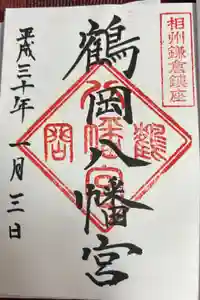 相州鎌倉鎮座
鶴岡八幡宮
平成三十年 一月三日